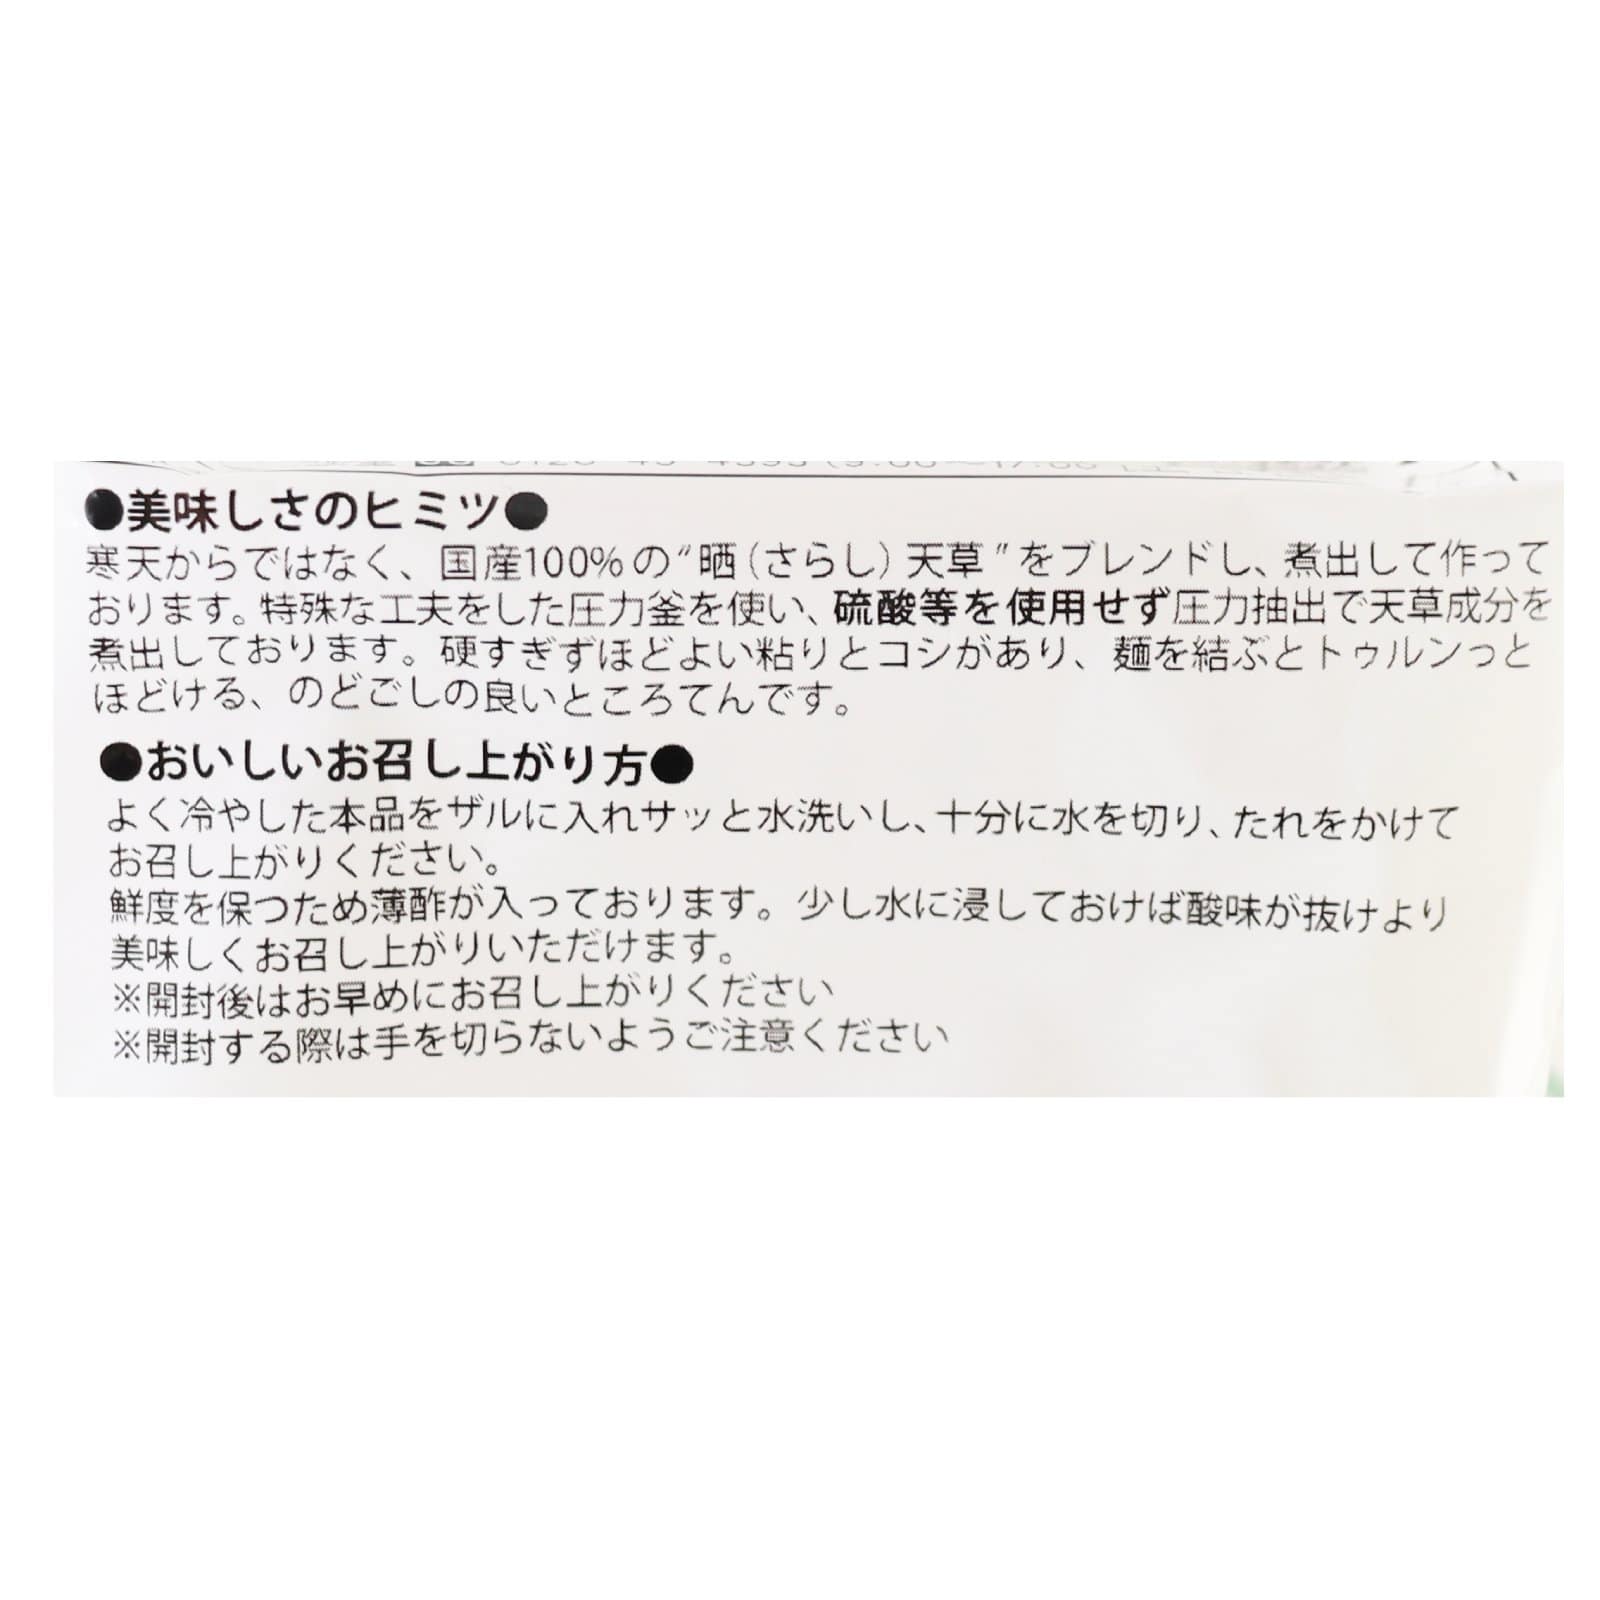 ●美味しさのヒミツ●
寒天からではなく、国産100%の“晒（さらし）天草”をブレンドし、煮出して作って
おります。特殊な工夫をした圧力釜を使い、硫酸等を使用せず圧力抽出で天草成分を
煮出しております。硬すぎずほどよい粘りとコシがあり、麺を結ぶとトゥルンっと
ほどける、のどごしの良いところてんです。
●おいしいお召し上がり方●
よく冷やした本品をザルに入れサッと水洗いし、十分に水を切り、たれをかけて
お召し上がりください。
鮮度を保つため薄酢が入っております。少し水に浸しておけば酸味が抜けより
美味しくお召し上がりいただけます。
※開封後はお早めにお召し上がりください
※開封する際は手を切らないようご注意ください